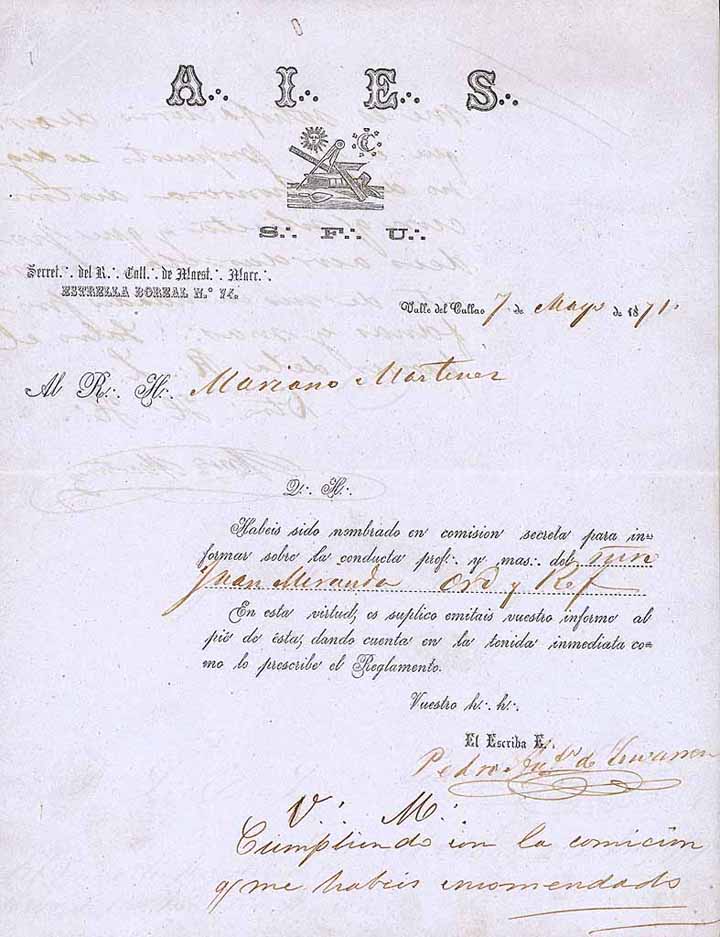 A∴ I∴ E∴ S∴
S∴ F∴ U∴
Secret∴ del R∴ Call∴ de Maest∴ Marc∴
ESTRELLA BOREAL N.º 74.
Valle del Callao 7 de Mayo de 1871.
Al R∴ H∴ Mariano Martinez
Q∴ H∴
Habeis sido nombrado en comision secreta para in-
formar sobre la conducta prof∴ y mas∴ del
Juan Miranda Oro y Ref
En esta virtud, os suplico emitais vuestro informe al
pié de ésta, dando cuenta en la tenida inmediata co-
mo lo prescribe el Reglamento.
Vuestro h∴ h∴
El Escriba E∴
Pedro de
V∴ M∴
Cumpliendo con la comicion
q/ me habeis encomendado